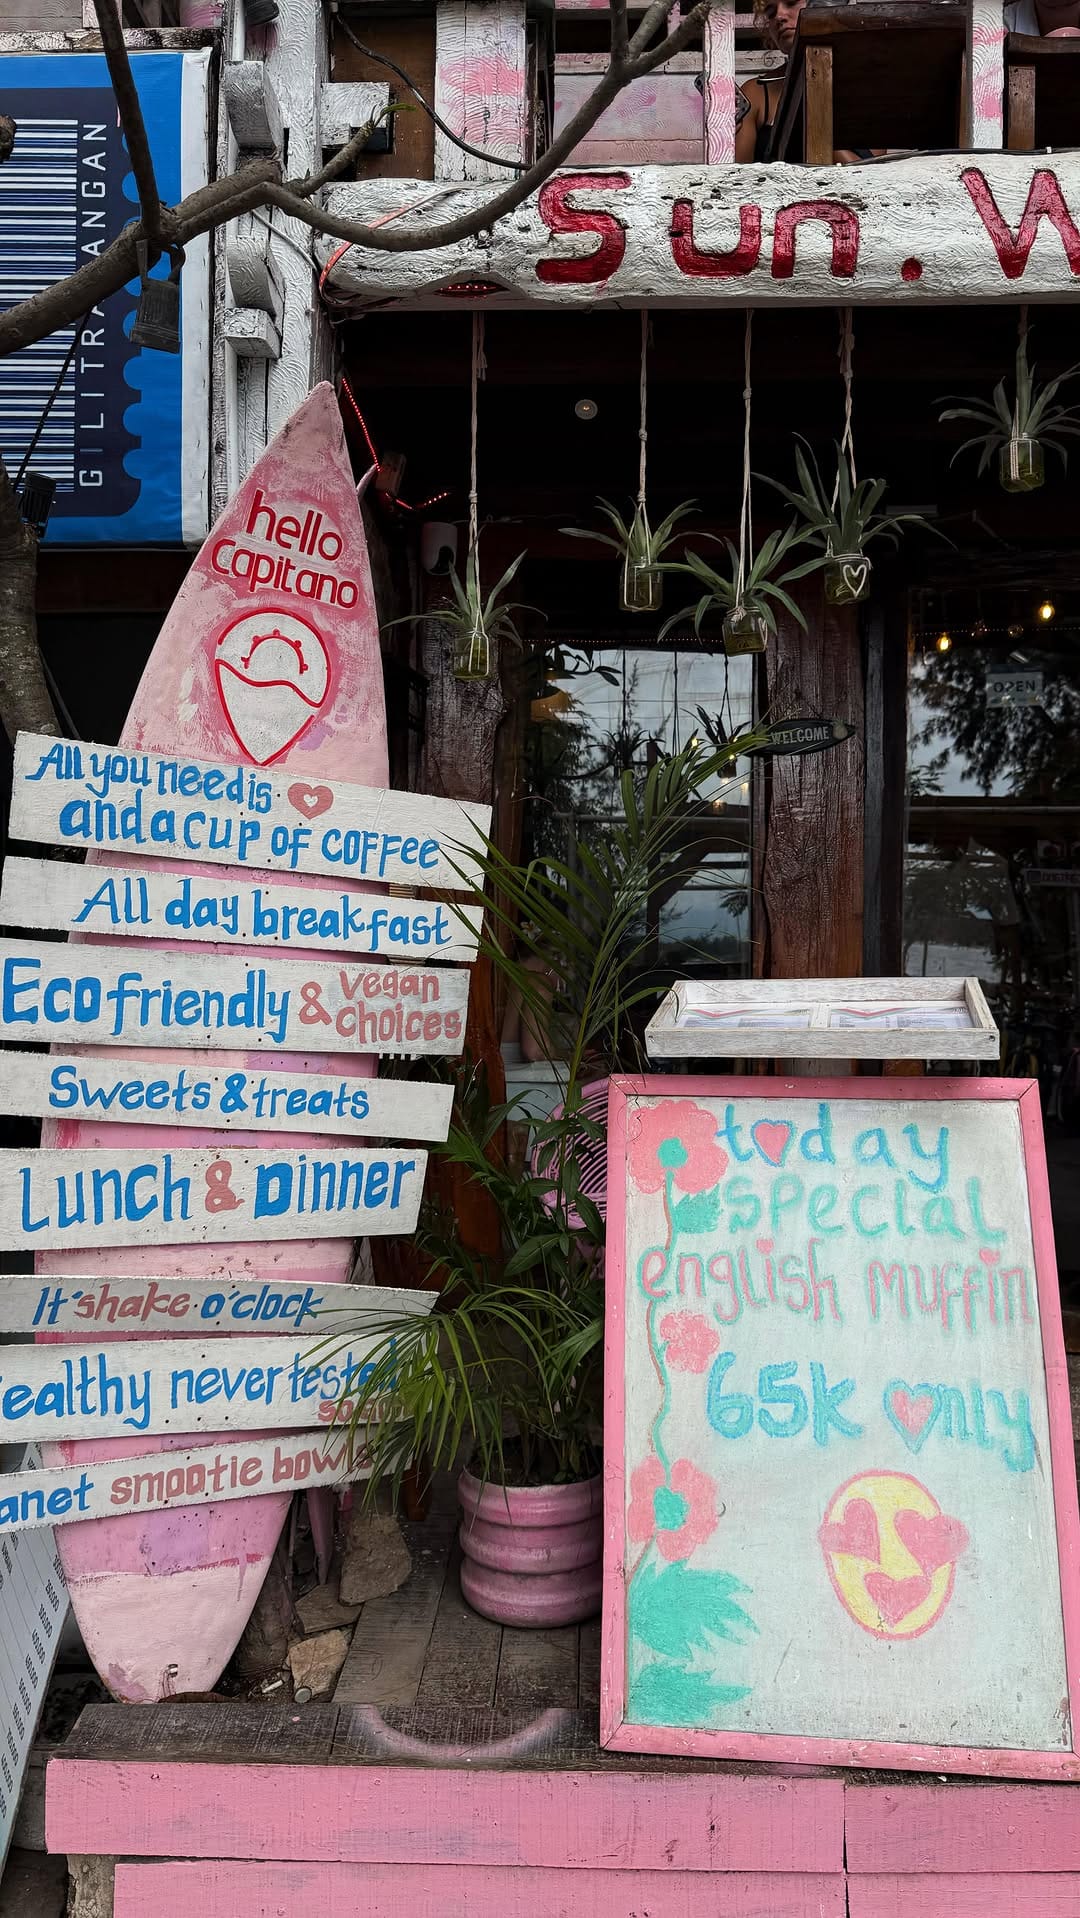 GILITRAWANGAN
Sun. W
hello
capitano
All you need is
and a cup of coffee
All day breakfast
Eco friendly & vegan
choices
Sweets & treats
Lunch & Dinner
It's shake o'clock
ealthy never tested
so good
anet smootie bowls
OPEN
WELCOME
today
special
english muffin
65k only